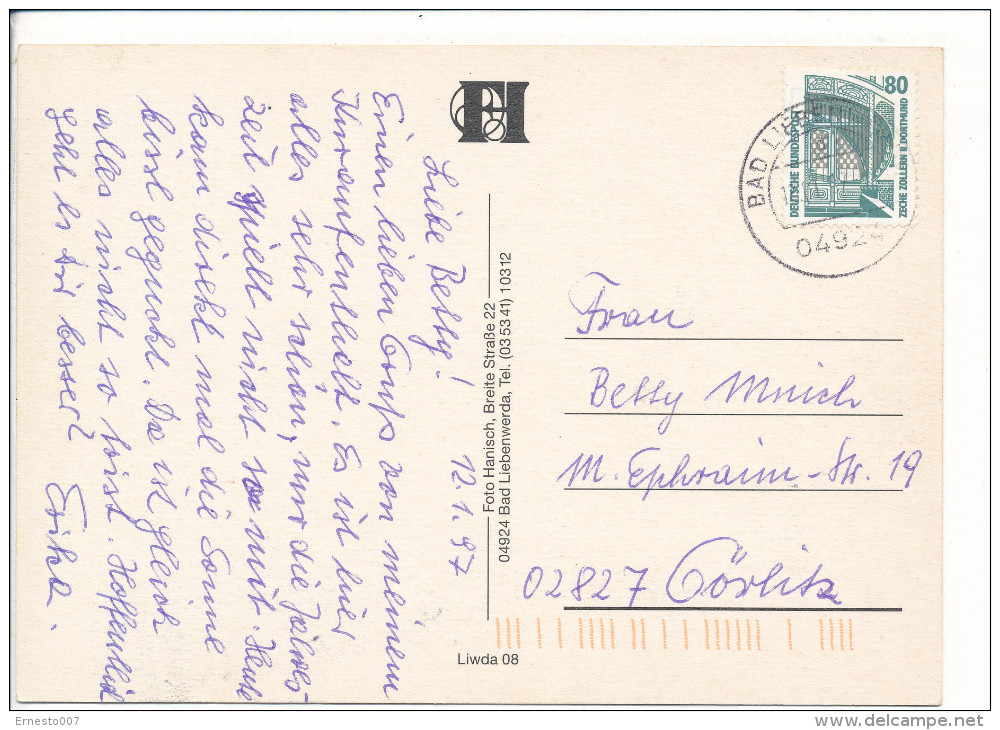 Liebe Betty! 12.1.97
Einen lieben Gruß von meinem
Kuraufenthalt. Es ist hier
alles sehr schön, nur die Jahres-
zeit spielt nicht so mit. Heute
kam direkt mal die Sonne
bissl geguckt. Da ist gleich
alles nicht so trist. Hoffentlich
geht es Dir besser?
Erika.
FH
Foto Hanisch, Breite Straße 22
04924 Bad Liebenwerda, Tel. (03 53 41) 10312
Liwda 08
80
DEUTSCHE BUNDESPOST
ZECHE ZOLLERN II DORTMUND
BAD LIEBEN
04924
Frau
Betty Mnich
M. Ephraim-Str. 19
02827 Görlitz
Ernesto007
www.delcampe.net